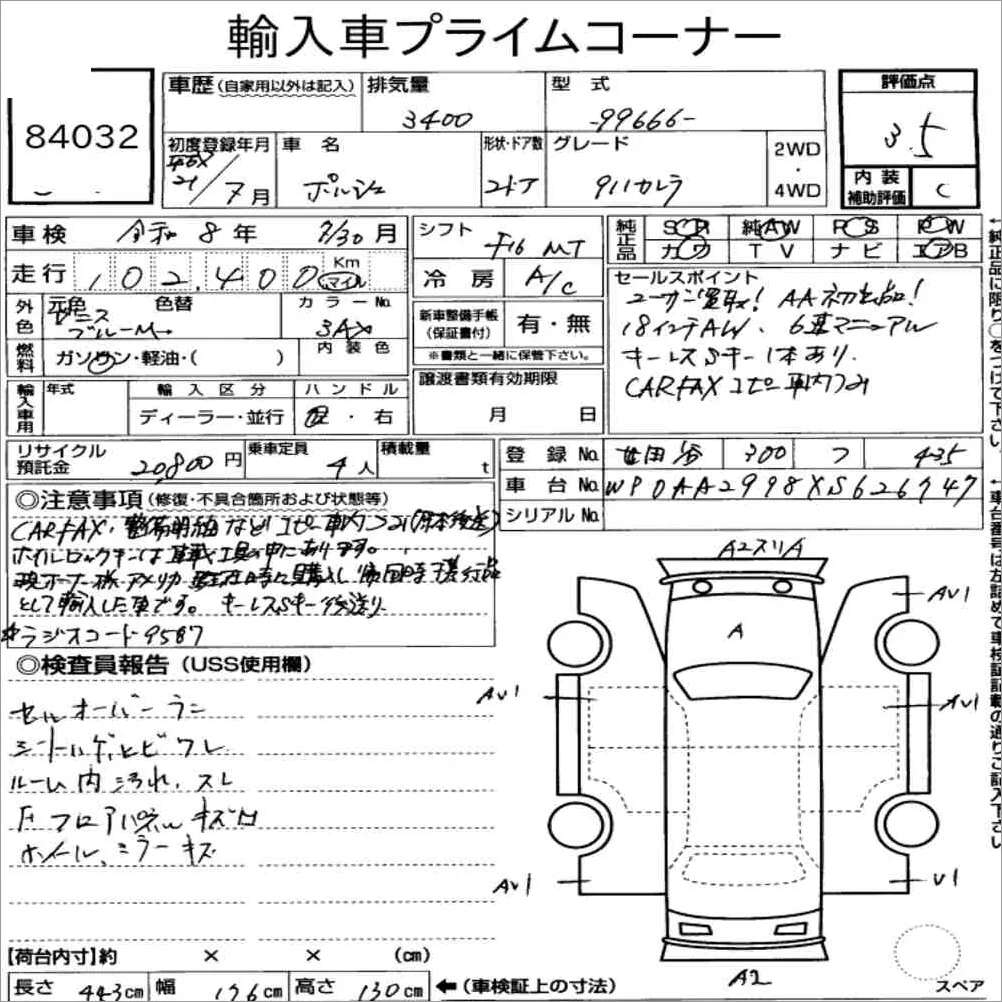 輸入車プライムコーナー
84032
車歴(自家用以外は記入)
排気量 3400
型式 -99666-
評価点 3.5
初度登録年月 21/7月
車名 ポルシェ
形状・ドア数 2ドア
グレード 911カレラ
2WD・4WD
内装補助評価 C
車検 令和8年 7/30月
走行 102,400 Km マイル
シフト F16 MT
冷房 A/C
純正品 SR 純AW PS PW
カワ TV ナビ エアB
外色 元色 色替 カラーNo.
ブルーM 3AX
燃料 ガソリン・軽油・( ) 内装色
新車整備手帳(保証書付) 有・無
※書類と一緒に保管下さい。
セールスポイント
ユーザー買取! AA初出品!
18インチAW、6速マニュアル
キーレスSキー1本あり.
CARFAXコピー車内つみ
輸入車用 年式 輸入区分 ハンドル
ディーラー・並行 左・右
譲渡書類有効期限
月 日
リサイクル預託金 20,800円
乗車定員 4人
積載量 t
登録No. 世田谷 300 フ 435
車台No. WP0AA2998XS626747
シリアルNo.
◎注意事項(修復・不具合箇所および状態等)
CARFAX、整備明細などコピー車内つみ(原本後送)
ホイルロックキーは車載工具の中にあります。
現オーナー様アメリカ駐在時に購入し帰国時携行品
として輸入した車です。キーレスSキー後送り
*ラジオコード9587
◎検査員報告(USS使用欄)
シートハゲ、ヒビワレ
ルーム内汚れ、スレ
Fフロアパネルキズ凹
ホイール、ミラーキズ
A2スリA
A
AV1
AV1
AV1
AV1
V1
A2
スペア
【荷台内寸】約 × × (cm)
長さ 443cm 幅 176cm 高さ 130cm ←(車検証上の寸法)
←純正品に限り○をつけて下さい。
←車台番号は左詰めで車検証記載の通りご記入下さい